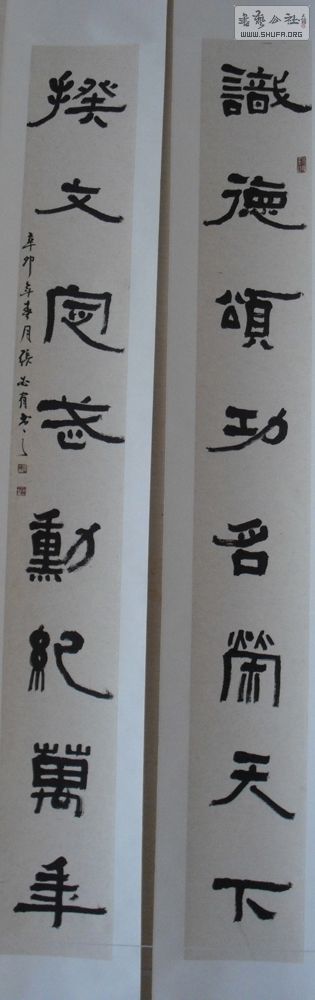 識德頌功名榮天下
揆文定武勳紀萬年
辛卯年春月張必有書
書藝公社
WWW.SHUFA.ORG